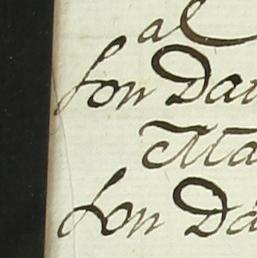 al
son Dav
Ma
son Da